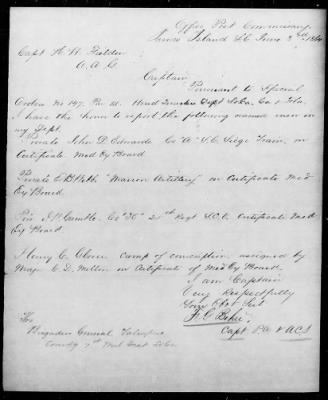 Office Post Commissary
James Island SC June 2nd 1864
Capt H. H. Fielder
A. A. G
Captain
Pursuant to Special
Orders No 147 Par. Head Quarters Dept So Ca, Ga & Fla.
I have the honor to report the following named men in
my Dept.
Private John D. Edwards Co "A" S.C. Siege Train, on
Certificate Med Ex Board
Private "Marion Artillery" on Certificate Med
Ex Board.
Priv Gamble, Co Regt S.C.V. Certificate Med
Ex Board.
Henry C. camp of conscription assigned by
Majr C. D. Melton on Certificate of Med Ex Board.
I am Captain
Very Respectfully
Your Obt Svt
Capt P.A. & A.C.S
To
Brigadier General Taliaferro
Comdg 7th Mil Dist So Ca